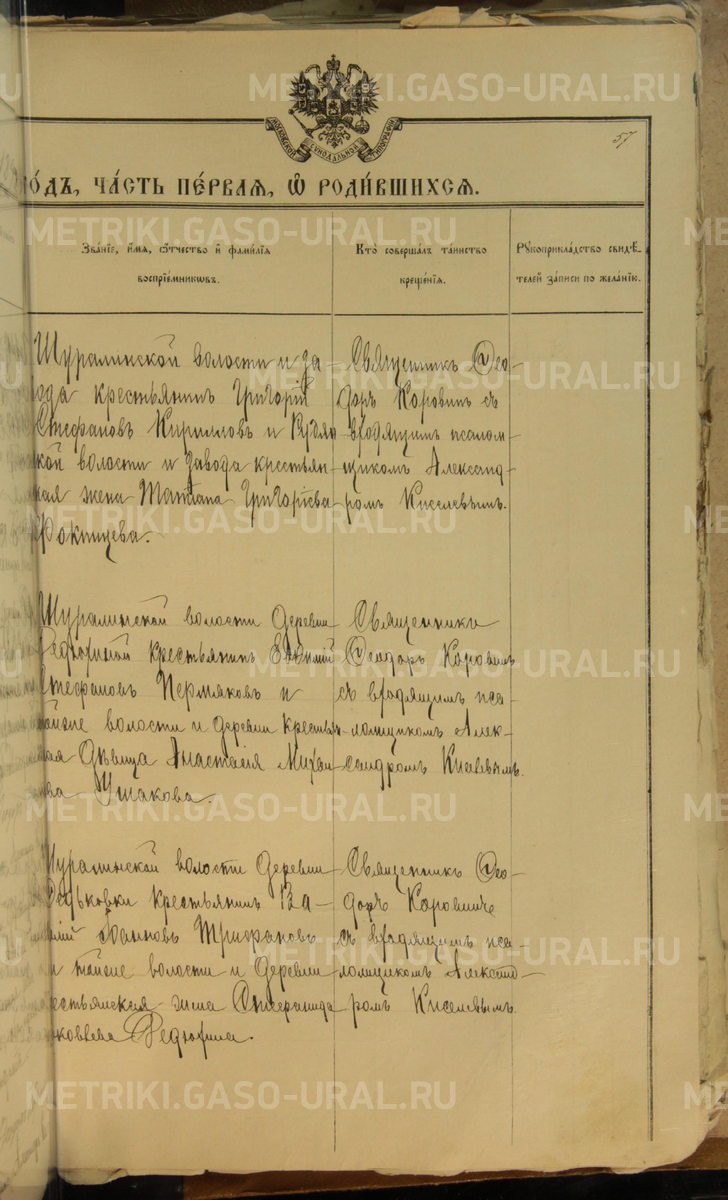 57
МОСКОВСКОЙ СѴНОДАЛЬНОЙ ТИПОГРАФІИ
О́ДЪ, ЧА́СТЬ ПЕ́РВАЯ, Ѡ҆ РОДИ́ВШИХСЯ.
Зва́ніе, и҆́мя, ѻ҆́тчество и҆ фами́лїя
воспрїе́мникωвъ.
Кто̀ соверша́лъ та́инство
креще́нїя.
Рꙋкоприкла́дство свидѣ́-
телей за́писи по жела́нїю.
Шуралинской волости и За-
ода крестьянинъ Григорій
Стефановъ Кирилловъ и
кой волости и завода крестьян-
кая жена Татіана Григоріева
Священникъ Ѳео-
доръ Коровинъ съ
в. ӏодящимъ псалом-
щикомъ Александ-
ромъ Киселевымъ.
Шуралинской волости деревни
крестьянинъ Евфимій
Стефановъ Пермяковъ и
тойже волости и деревни крестьян-
кая дѣвица Анастасія Михаи
ова Ушакова.
Священникъ
Ѳеодоръ Коровинъ
съ пса-
ломщикомъ Алек-
сандромъ Киселевымъ.
Шуралинской волости деревни
Федьковки крестьянинъ Ва-
силій Іоанновъ Трифановъ
и тойже волости и деревни
рестьянская жена Стефанида
Федюнина.
Священникъ Ѳео-
доръ Коровинъ
съ пса-
ломщикомъ Александ-
ромъ Киселевымъ.
METRIKI.GASO-URAL.RU